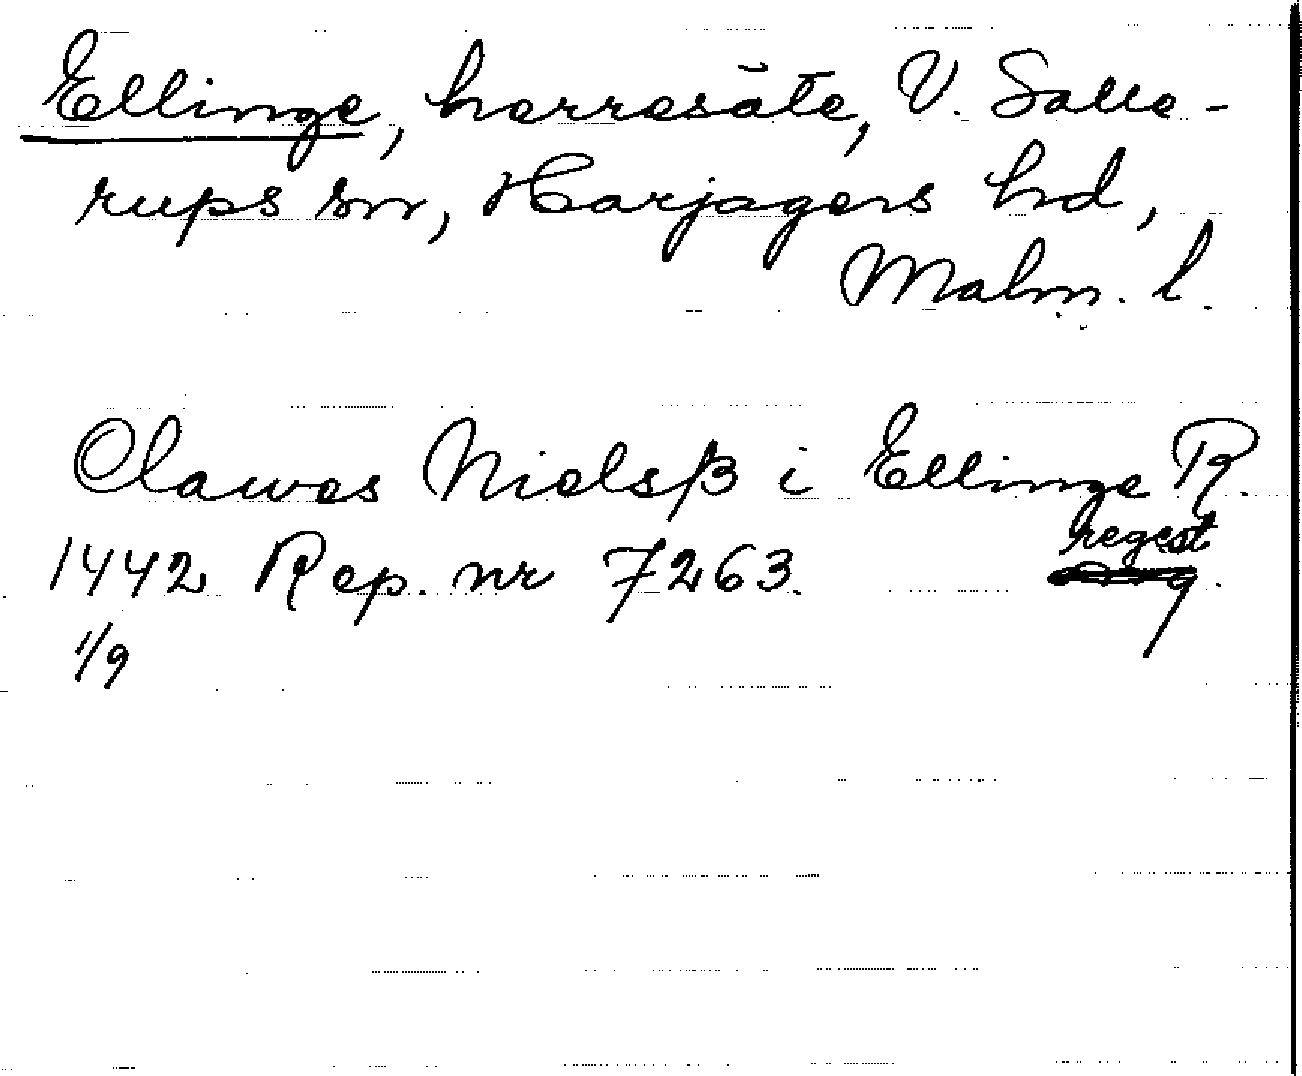 Ellinge, herresäte, V. Salle-
rups sn, Harjagers hd,
Malm. l.
Clawes Nielsβ i Ellinge R.
regest
1442 Rep. nr 7263.
1/9